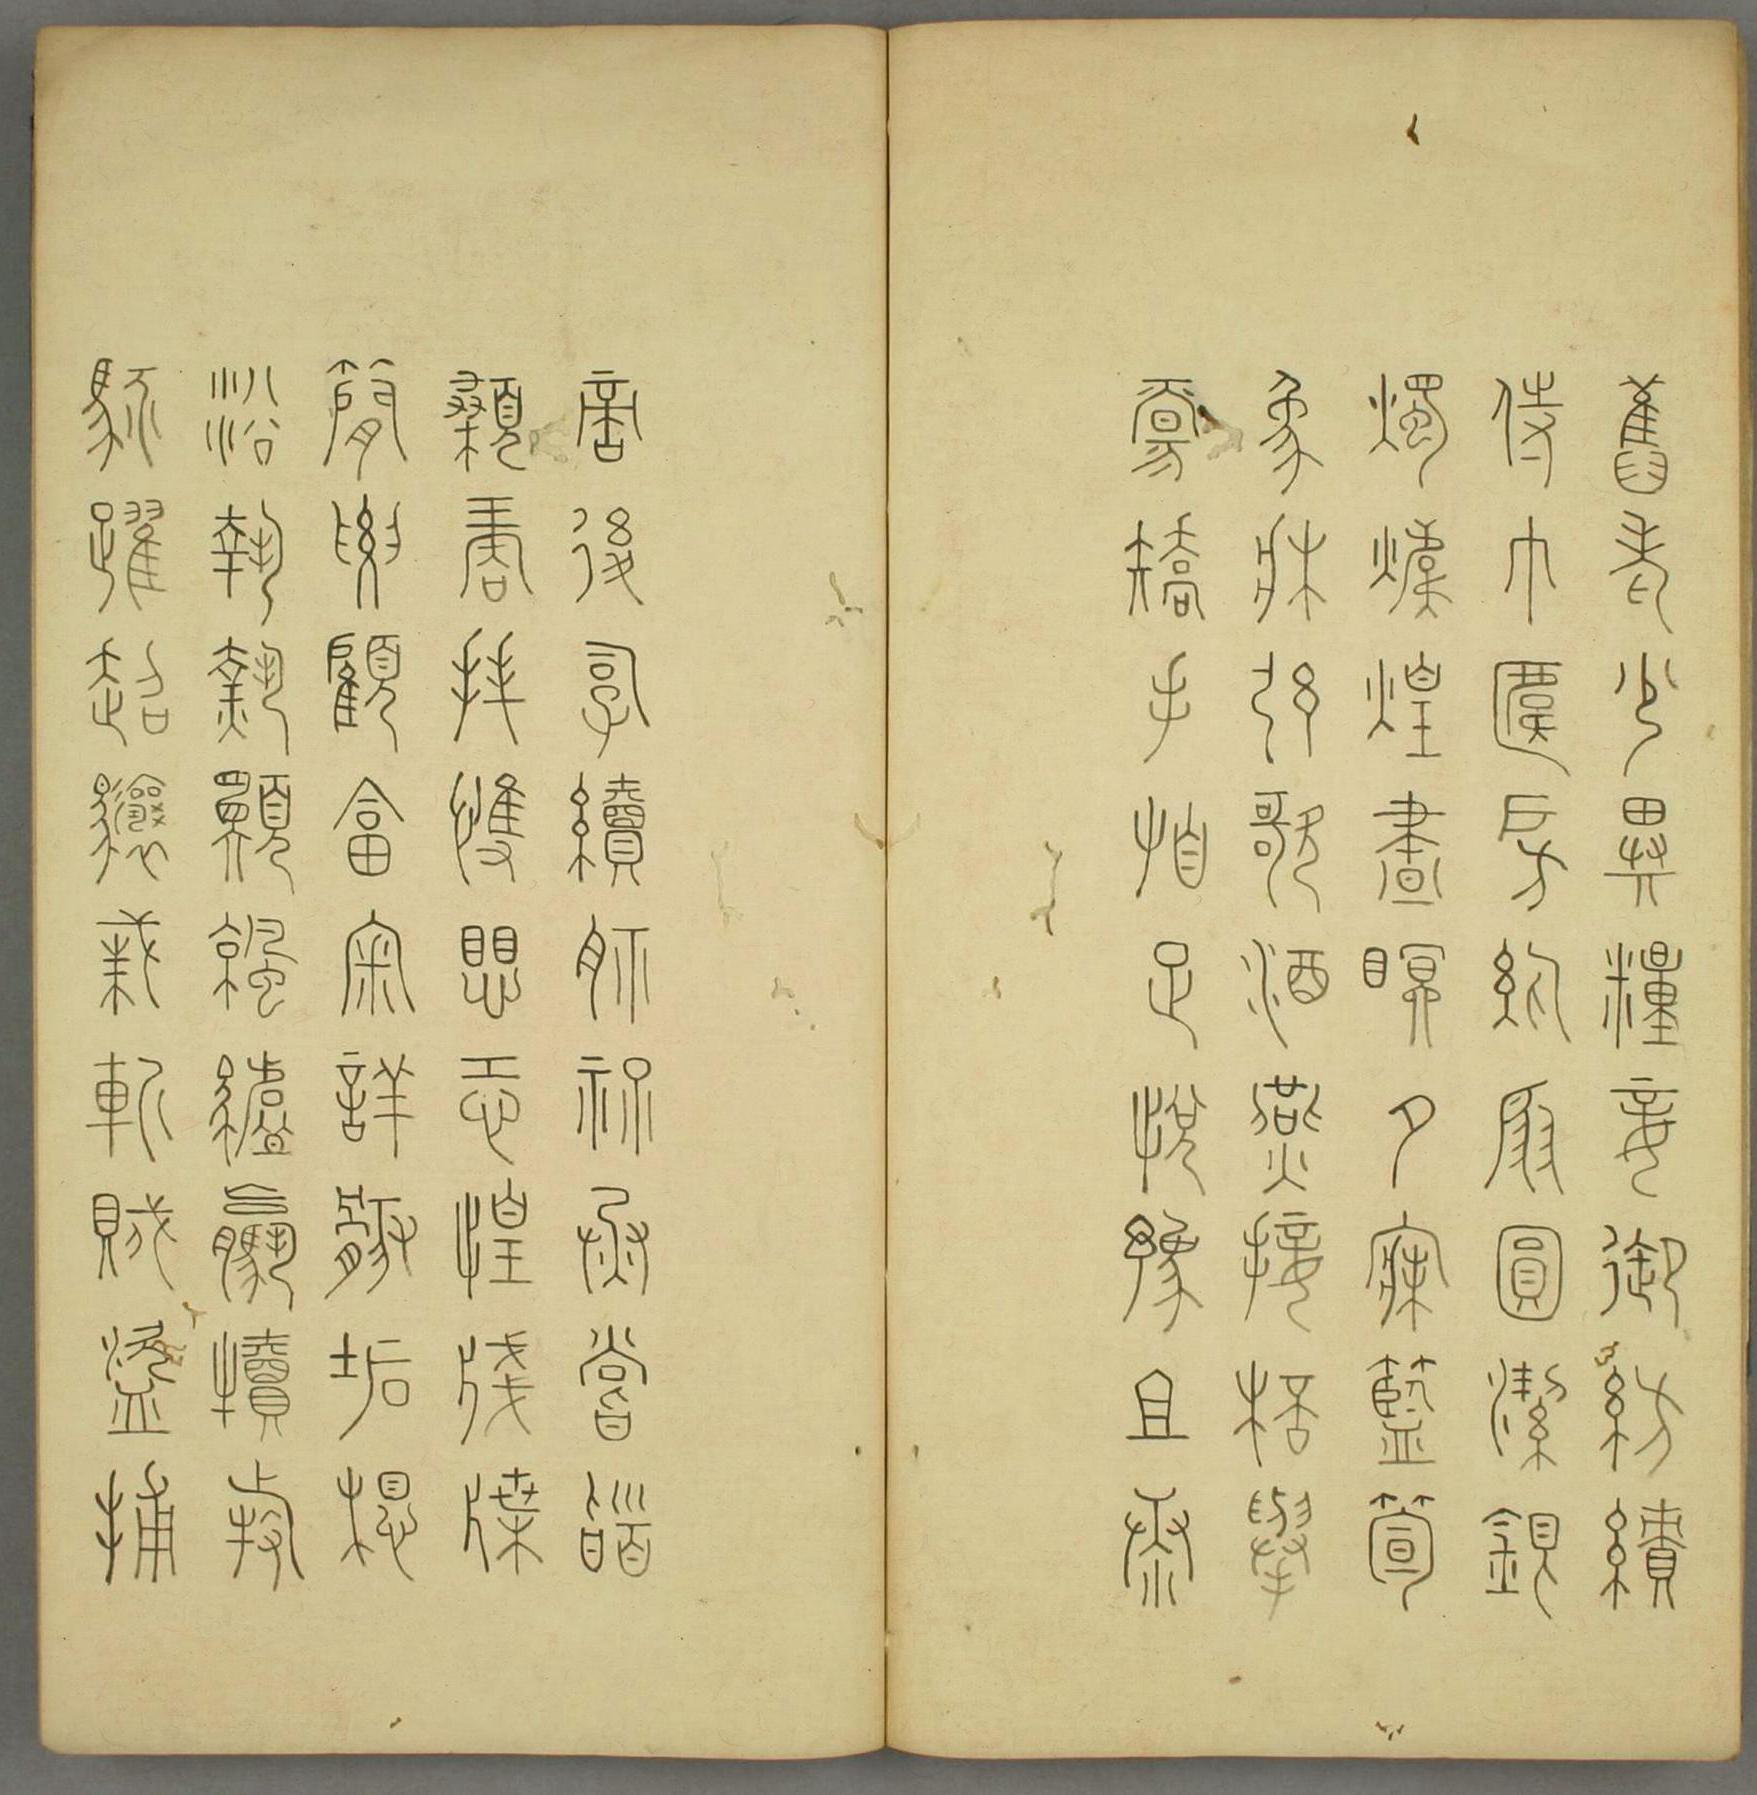 舊老少異糧妾御紡績
侍巾帷房紈扇圓潔銀
燭煒煌晝瞑夕寐籃筍
象牀弦歌酒燕接杯舉
觴矯手足悅豫且康
嫡後嗣續祭祀烝嘗稽
顙再拜懼恐惶牋牒
簡要顧答審詳骸垢想
浴執熱願涼驢騾犢特
駭躍超驤誅斬賊盜捕